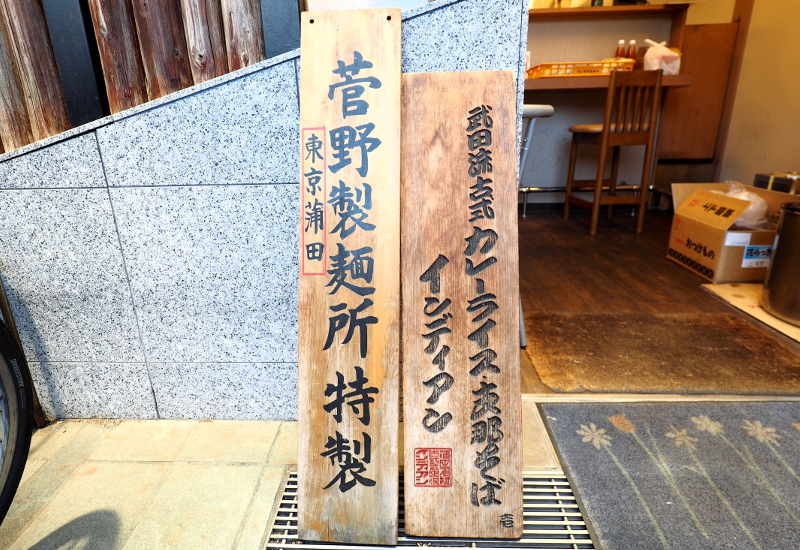 菅野製麺所特製
東京蒲田
武田流古式カレーライス・支那そば
インディアン
壱
おつけもの